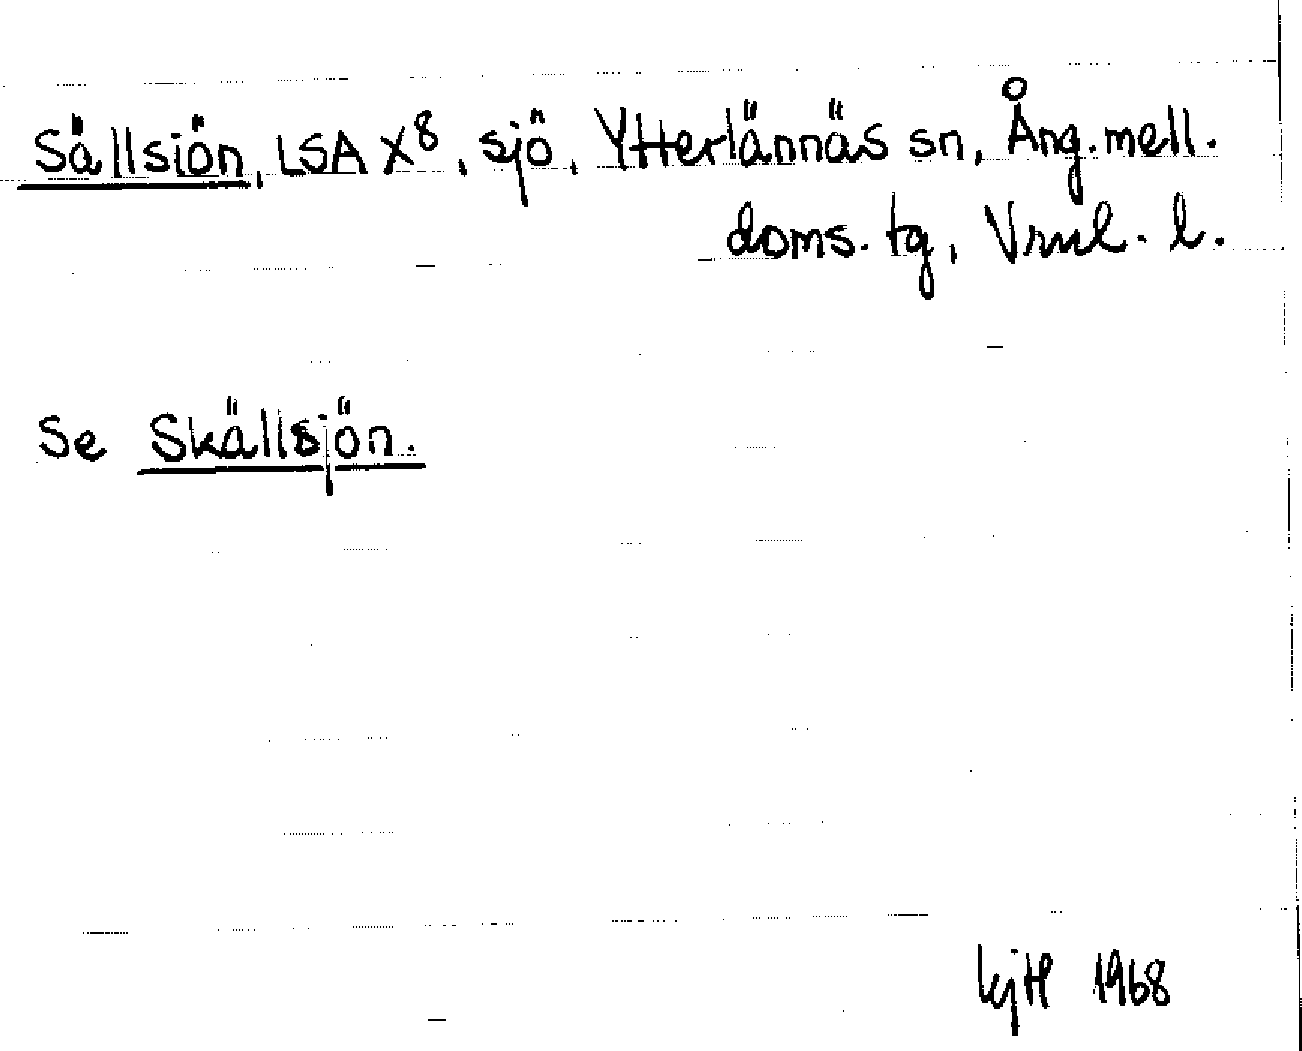 Sällsiön, LSA X8, sjö, Ytterlännäs sn, Ång. mell.
doms. tg, Vrnl. l.
Se Skällsjön.
kjH 1968